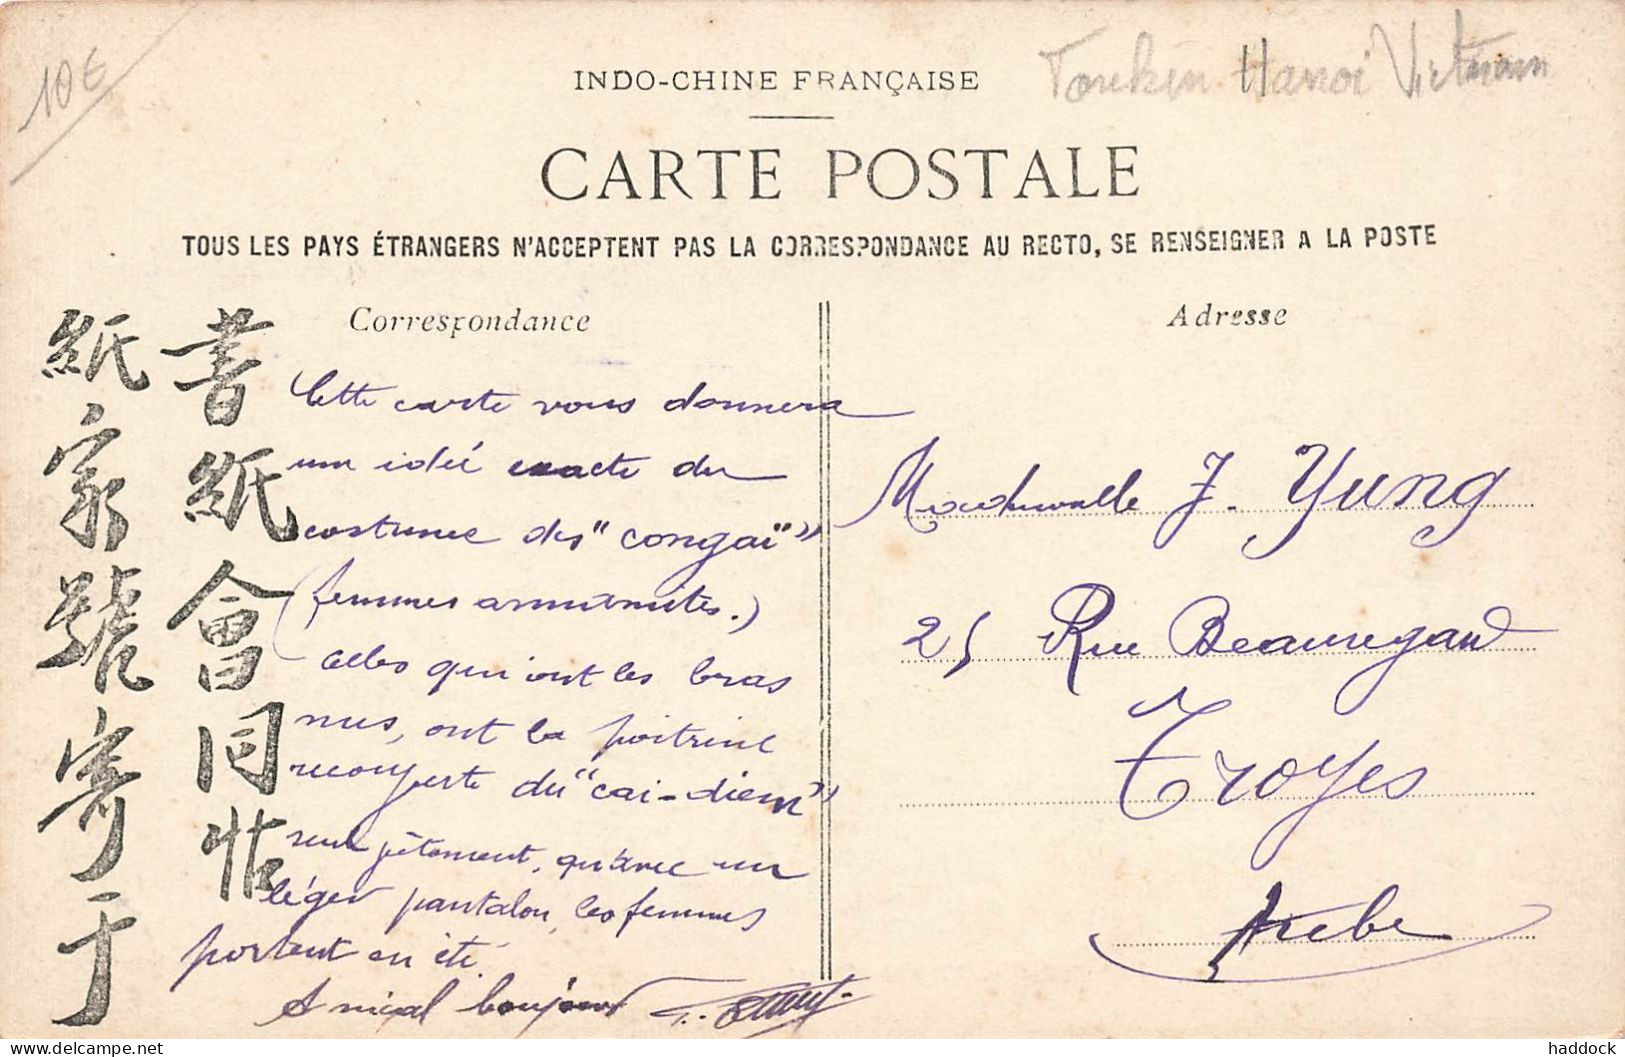 10€
INDO-CHINE FRANÇAISE
Tonkin Hanoi Vietnam
CARTE POSTALE
TOUS LES PAYS ÉTRANGERS N'ACCEPTENT PAS LA CORRESPONDANCE AU RECTO, SE RENSEIGNER A LA POSTE
Correspondance
Adresse
書紙會同帖
紙家號寄于
Cette carte vous donnera
une idée exacte du
costume des "congaï"
(femmes annamites.)
celles qui ont les bras
nus, ont la poitrine
recouverte du "cai-diem"
seul vêtement, qu'avec un
léger pantalon, les femmes
portent en été.
Amical bonjour
Mademoiselle J. Yung
25 Rue Beauregard
Troyes
Aube
haddock